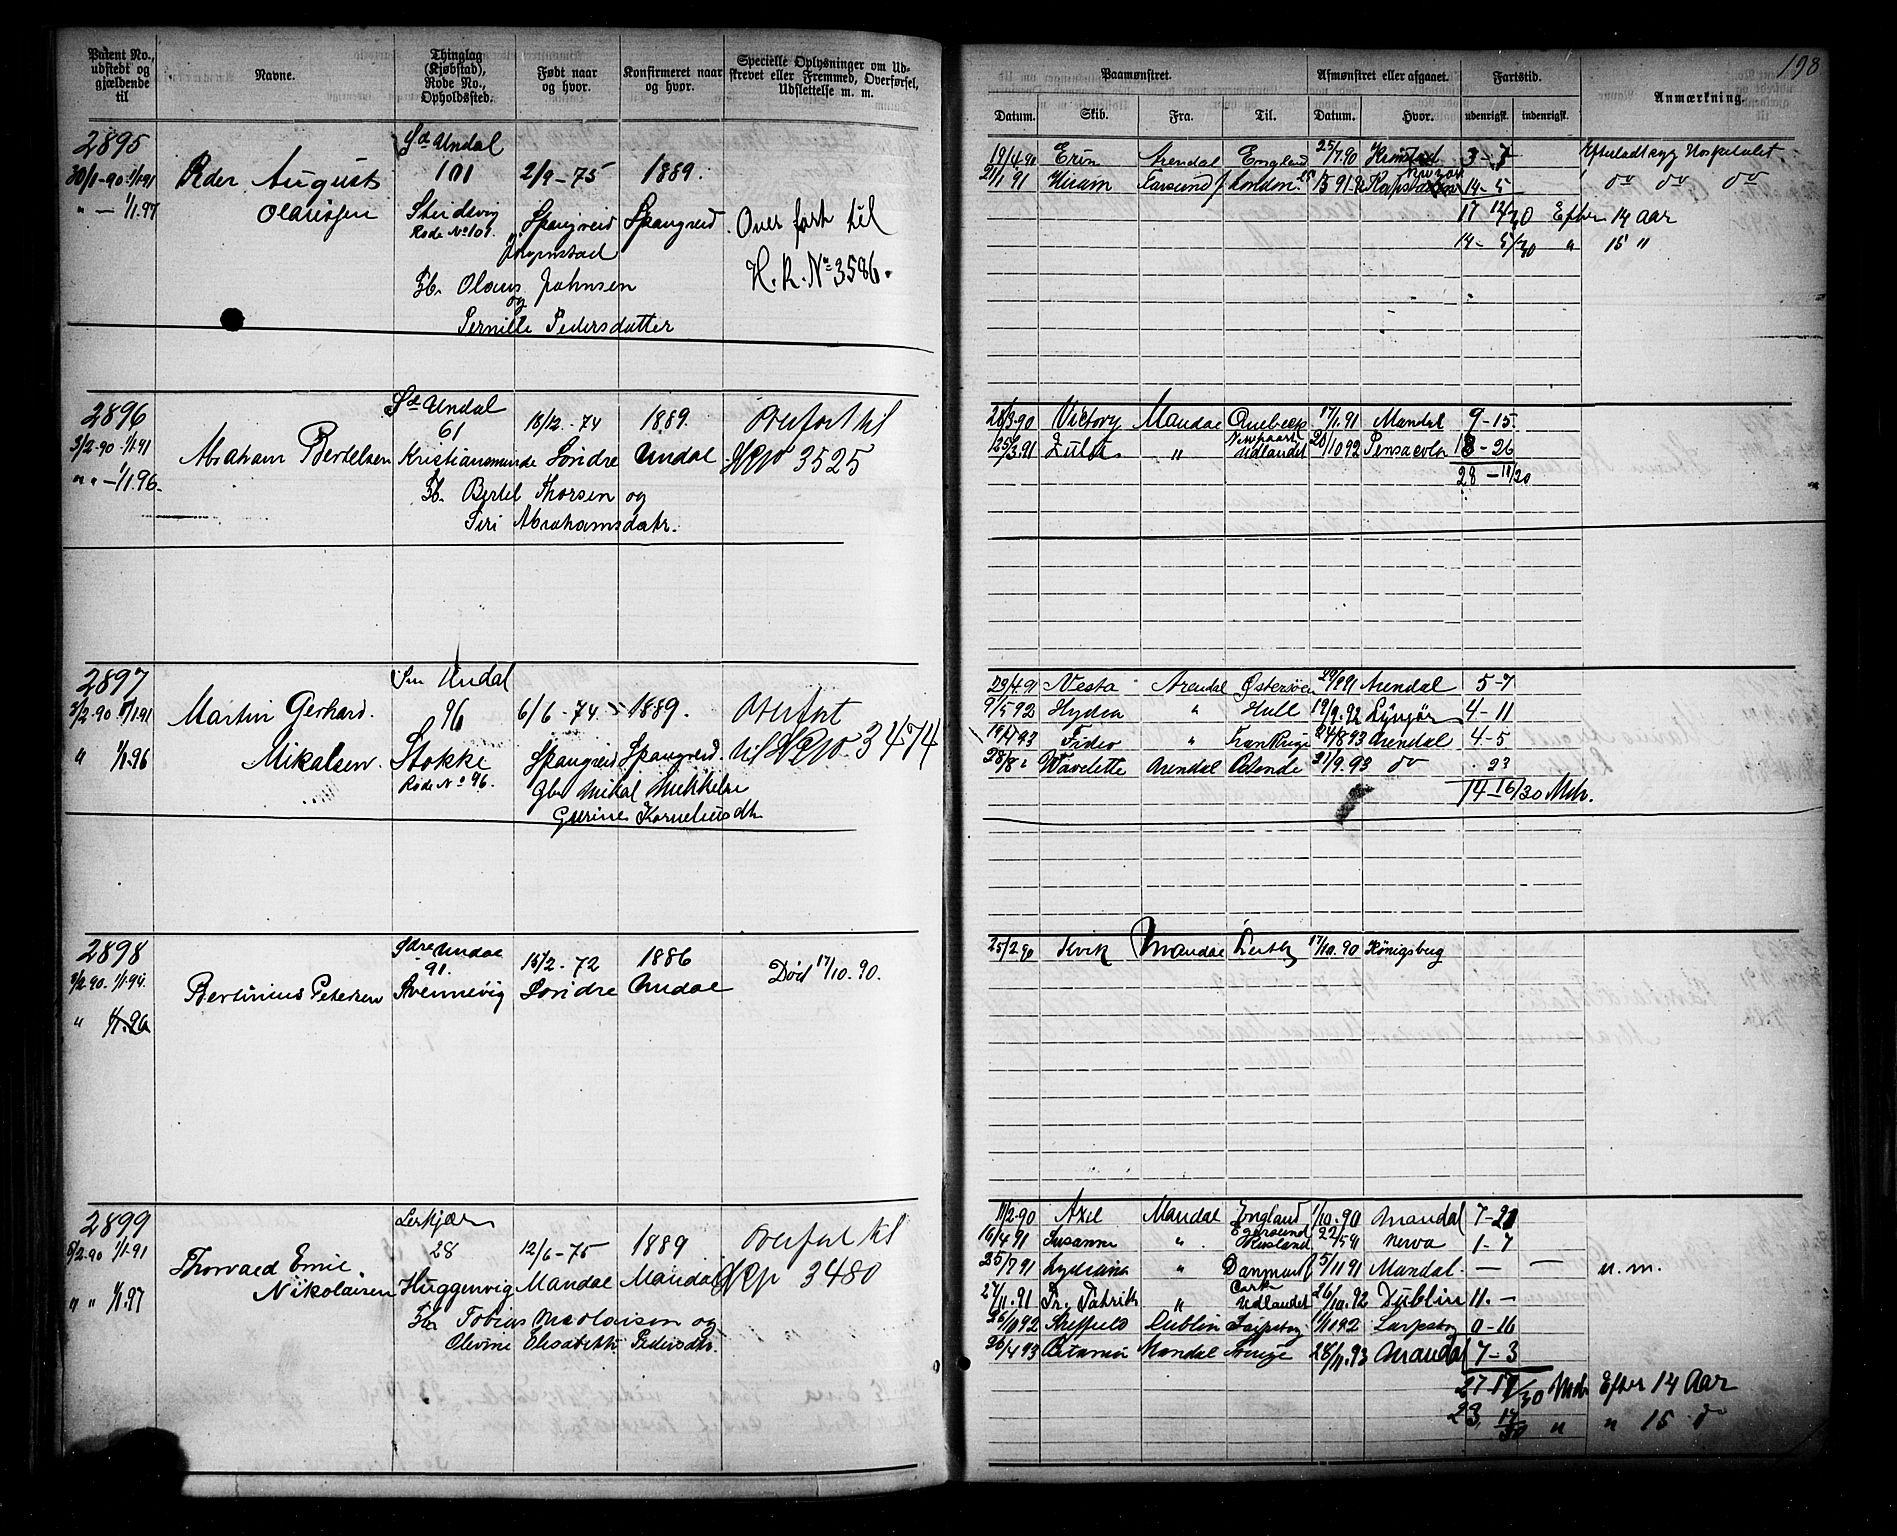 198
Patent No., udstedt og gjældende til
Navne.
Thinglag (Kjøbstad), Rode No., Opholdssted.
Født naar og hvor.
Konfirmeret naar og hvor.
Specielle Oplysninger om Udskrevet eller Fremmed, Overførsel, Udslettelse m. m.
Paamønstret.
Afmønstret eller afgaaet.
Fartstid.
Anmærkning.
Datum. Skib. Fra. Til. Datum. Hvor. udenrigsk. indenrigsk.
2895
30/1-90 1/1 91
" — 1/1. 97
Peder August
Olaussen
Sd Undal
101
Rode No 101.
2/9-75
Spangreid
1889.
Spangreid
Overført til
H. R. No 3586.
Fb. Olaus Johnsen
og
Pernille Pedersdatter
19/4 90 Erin Arendal England 25/7.90 3-7 Hospitalet
21/1 91 Hiram Farsund London 14-5 do do do
17 12/30 Efter 14 Aar
14- 5/30 " 15 "
2896
3/2-90 1/1 91
" " — 1/1. 96.
Abraham Bertelsen
Sd Undal
61
Kristiansmunde
18/12-74
Søndre
1889.
Undal
Overført til
3525
Fb. Bertel Thorsen og
Siri Abrahamsdatr.
Victory Mandal Quebeck 17/1.91 Mandal 9-15
25/3.91 Zulu " Udlandet 20/10 92 Pensacola 18-26
28-11/30
2897
3/2-90 1/1 91
" 1/1. 96
Martin Gerhard
Mikalsen
Sm Undal
96
Stokke
Rode No 96.
6/6-74
Spangreid
1889.
Spangreid
Overført
til 3474
Gurine Korneliusdtr
23/4.91 Vesta Arendal Østersøen Arendal 5-7
9/5 92 Hydra " Hull 19/9.92 Lyngør 4-11
" Frankrige 24/8 93 Arendal 4-5
28/8 " Arendal 21/9.93 do 23
14-16/30 Mdr.
2898
3/2-90. 1/1.94.
" 1/1. 96
Bertinius Petersen
Sdre Undal
91.
Svennevig
15/2-72
Søndre
1886
Undal
Død 17/10. 90.
25/2 90 Kvik Mandal Leith 17/10. 90 Königsberg
2899
8/2-90 1/1 91
" " 1/1. 97
Thorvald Emil
Nikolaisen
Lerkjær
28
Huggenvig
12/6-75
Mandal
1889
Mandal
Overført til
3480
Fb. Tobias Nicolaisen og
Olevine Elisabeth Pedersdtr.
11/2-90 Axel Mandal England 1/10.90 Mandal 7-21
16/4.91 Susanne " Egersund Rusland 22/5 91 Nerva 1-7
25/7 91 Lydiana " Danmark 5/11 91 Mandal. — — u. m.
27/11.91 Pr. Patrik " Cork Udlandet 26/10.92 Dublin 11.—
26/10 92 Sheffield Dublin Sarpsborg Sarpsborg 0-16
26/4 93 Mandal 28/11.93 Mandal 7-3
27 17/30 Mdr Efter 14 Aar
23 14/30 " " 15 do